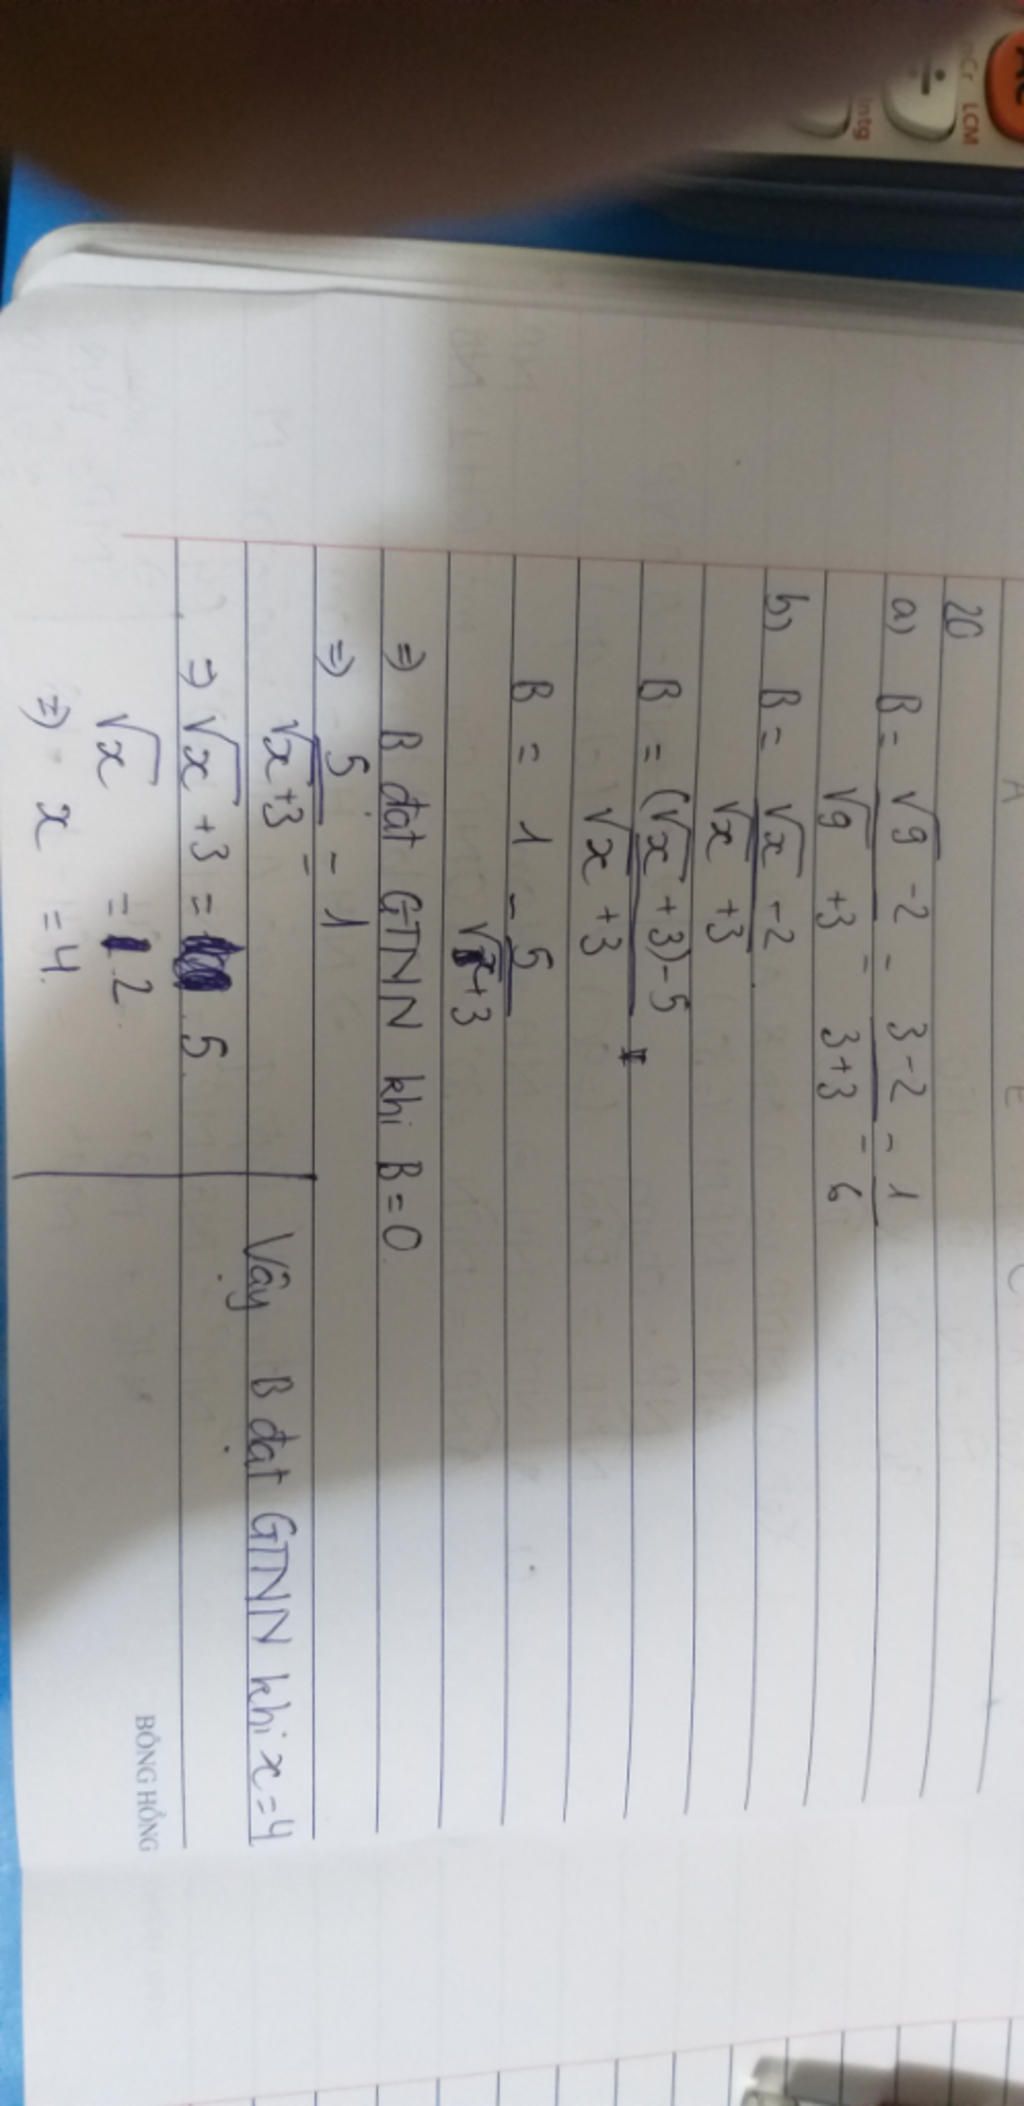 nCr LCM
÷
Intg
20
a) B = √9 - 2 = 3 - 2 = 1
√9 + 3 3 + 3 6
b) B = √x - 2
√x + 3
B = (√x + 3) - 5
√x + 3
B = 1 - 5
√x + 3
=> B đạt GTNN khi B = 0
=> 5 = 1
√x + 3
=> √x + 3 = 5
√x = 2
=> x = 4
Vậy B đạt GTNN khi x = 4
BÔNG HỒNG